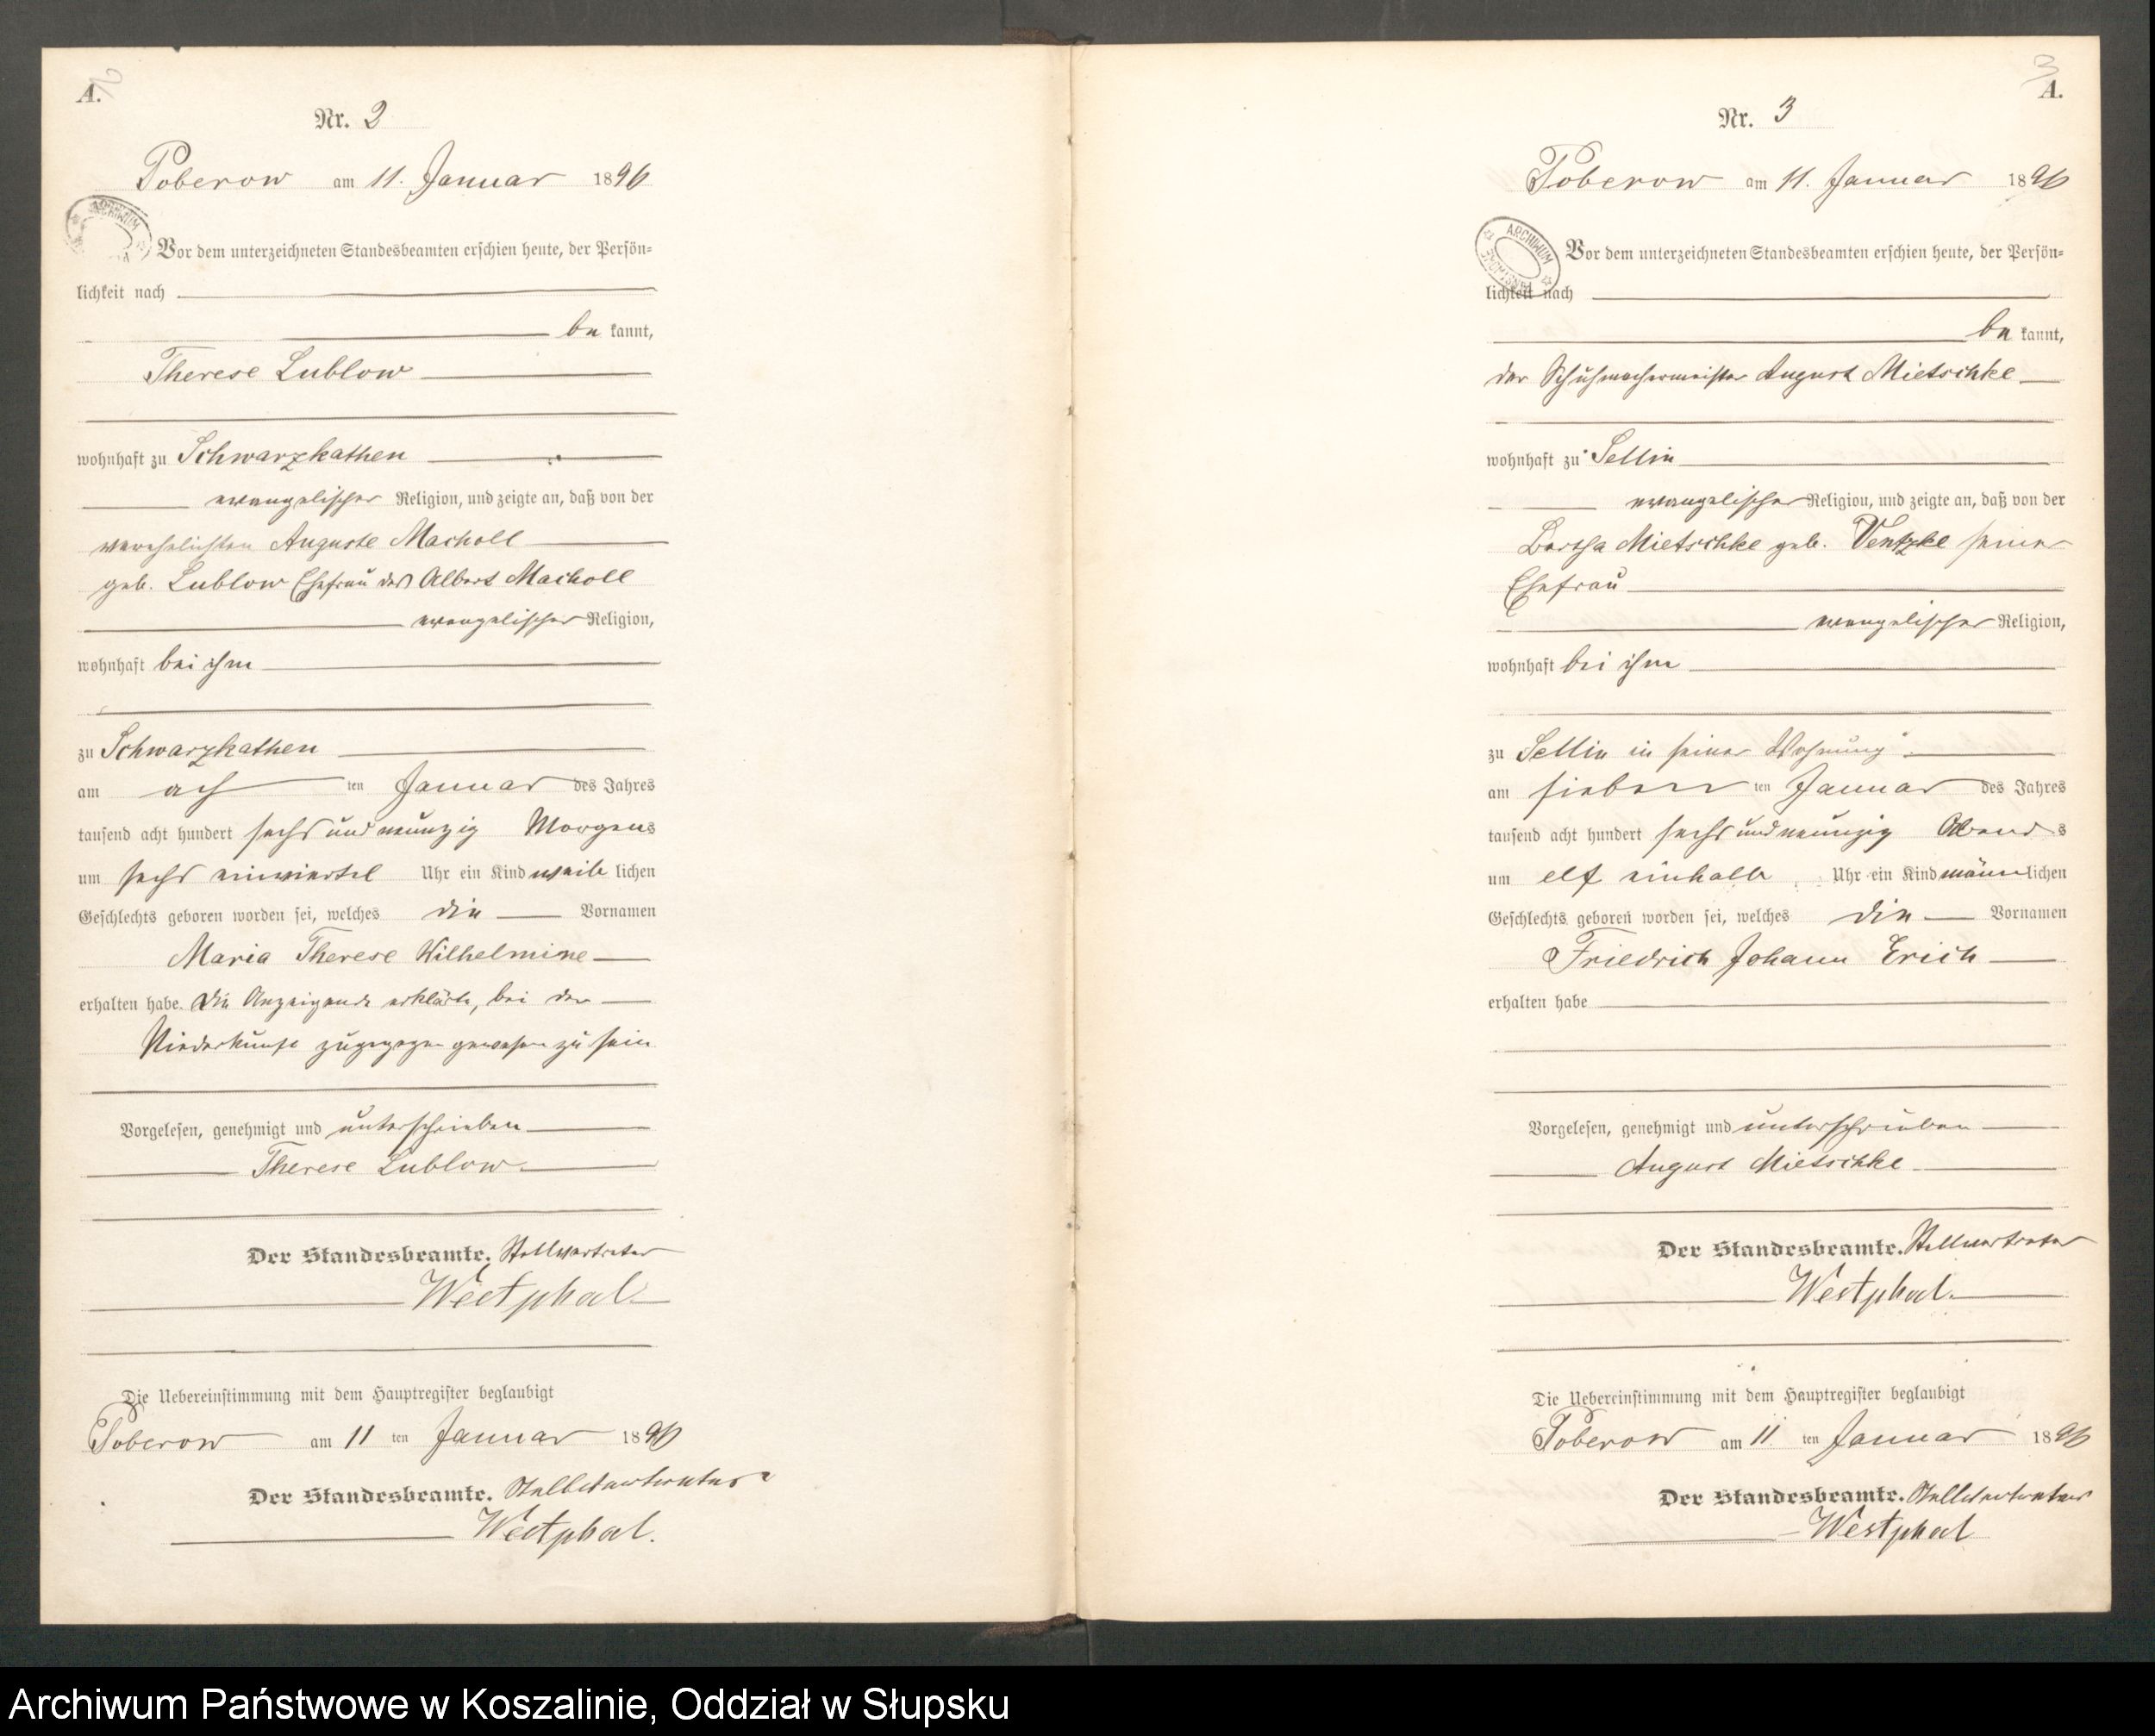 A.
2
Nr. 2
Poberow am 11. Januar 1896
ARCHIWUM
Vor dem unterzeichneten Standesbeamten erschien heute, der Persön=
lichkeit nach
be kannt,
Therese Lublow
wohnhaft zu Schwarzkathen
evangelischer Religion, und zeigte an, daß von der
verehelichten Auguste Macholl
geb. Lublow Ehefrau des Albert Macholl
evangelischer Religion,
wohnhaft bei ihm
zu Schwarzkathen
am ach ten Januar des Jahres
tausend acht hundert sechs und neunzig Morgens
um sechs einviertel Uhr ein Kind weib lichen
Geschlechts geboren worden sei, welches die Vornamen
Maria Therese Wilhelmine
erhalten habe. Die Anzeigende erklärte, bei der
Niederkunft zugegegen gewesen zu sein
Vorgelesen, genehmigt und unterschrieben
Therese Lublow.
Der Standesbeamte. Stellvertreter
Westphal.
Die Uebereinstimmung mit dem Hauptregister beglaubigt
Poberow am 11 ten Januar 1896
Der Standesbeamte. Stellvertreter
Westphal.
3
A.
Nr. 3
Poberow am 11. Januar 1896
ARCHIWUM PAŃSTWOWE
Vor dem unterzeichneten Standesbeamten erschien heute, der Persön=
lichkeit nach
be kannt,
der Schuhmachermeister August Mietschke
wohnhaft zu Sellin
evangelischer Religion, und zeigte an, daß von der
Bertha Mietschke geb. Ventzke seiner
Ehefrau
evangelischer Religion,
wohnhaft bei ihm
zu Sellin in seiner Wohnung
am sieben ten Januar des Jahres
tausend acht hundert sechs und neunzig Abend s
um elf einhalb Uhr ein Kind männ lichen
Geschlechts geboren worden sei, welches die Vornamen
Friedrich Johann Erich
erhalten habe
Vorgelesen, genehmigt und unterschrieben
August Mietschke
Der Standesbeamte. Stellvertreter
Westphal.
Die Uebereinstimmung mit dem Hauptregister beglaubigt
Poberow am 11 ten Januar 1896
Der Standesbeamte. Stellvertreter
Westphal
Archiwum Państwowe w Koszalinie, Oddział w Słupsku